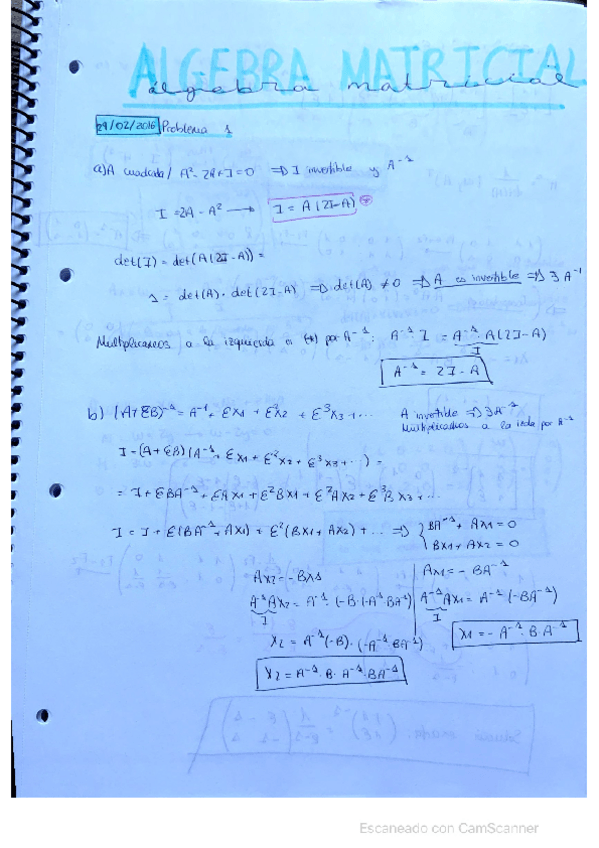 ÁLGEBRA MATRICIAL
álgebra matricial
29/02/2016 Problema 1
a) A cuadrada / A² - 2A + I = 0 ⇒ I invertible y A⁻¹
I = 2A - A² → I = A(2I-A)
det(I) = det(A(2I-A)) =
1 = det(A) · det(2I-A) ⇒ det(A) ≠ 0 ⇒ A es invertible ⇒ ∃ A⁻¹
Multiplicamos a la izquierda a (*) por A⁻¹: A⁻¹ · I = A⁻¹ · A(2I-A)
I
A⁻¹ = 2I - A
b) (A+εB)⁻¹ = A⁻¹ + εX1 + ε²X2 + ε³X3 + ... A invertible ⇒ ∃ A⁻¹
Multiplicamos a la izda por A⁻¹
I = (A+εB)(A⁻¹ + εX1 + ε²X2 + ε³X3 + ...) =
= I + εBA⁻¹ + εAX1 + ε²BX1 + ε²AX2 + ε³BX3 + ...
I = I + ε(BA⁻¹ + AX1) + ε²(BX1 + AX2) + ... ⇒ { BA⁻¹ + AX1 = 0
BX1 + AX2 = 0
AX2 = -BX1 AX1 = -BA⁻¹
A⁻¹AX2 = A⁻¹ · (-B·(-A⁻¹BA⁻¹) A⁻¹AX1 = A⁻¹(-BA⁻¹)
I I
X2 = A⁻¹(-B)·(-A⁻¹BA⁻¹) X1 = -A⁻¹·B·A⁻¹
X2 = A⁻¹·B·A⁻¹·BA⁻¹
Escaneado con CamScanner